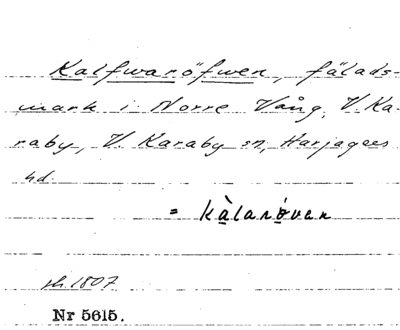 Kalfwaröfwen, fälads-
mark i Norre Vång, V. Ka-
raby, V. Karaby sn, Harjagers
hd.
= kàlarövan
sk. 1807
Nr 5615.